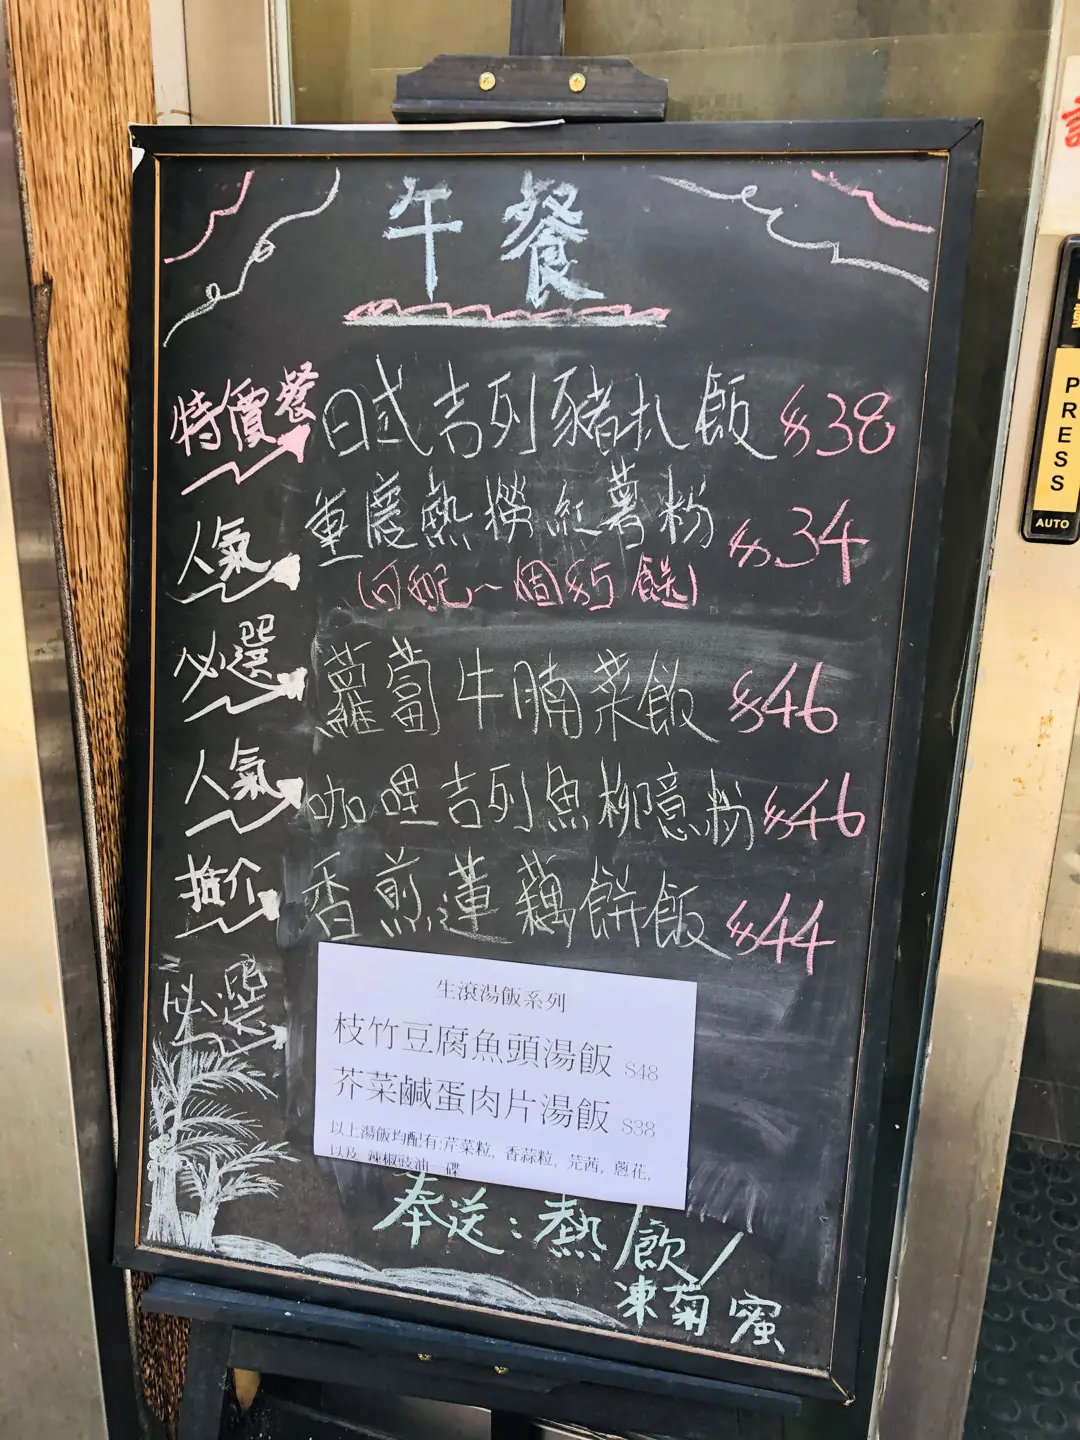 午餐
特價餐 日式吉列豬扒飯 $38
人氣 重慶熱撈紅薯粉 $34
(可配一個餸)
必選 蘿蔔牛腩菜飯 $46
人氣 咖哩吉列魚柳意粉 $46
推介 香煎蓮藕餅飯 $44
必選
生滾湯飯系列
枝竹豆腐魚頭湯飯 $48
芥菜鹹蛋肉片湯飯 $38
以上湯飯均配有:芹菜粒, 香蒜粒, 芫茜, 蔥花,
以及 辣椒豉油一碟
奉送:熱飲/
凍菊蜜
PRESS
AUTO